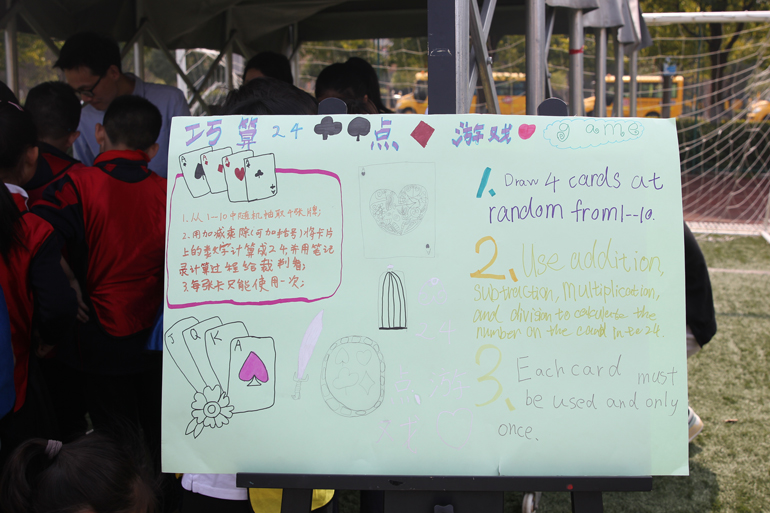 巧算24点 游戏 game
1.从1-10中随机抽取4张牌;
2.用加减乘除(可加括号)将卡片
上的数字计算成24,并用笔记
录计算过程给裁判看;
3.每张卡只能使用一次;
1. Draw 4 cards at
random from 1--10.
2. Use addition,
subtraction, multiplication,
and division to calculate the
number on the card
24.
3. Each card must
be used and only
once.
J Q K A